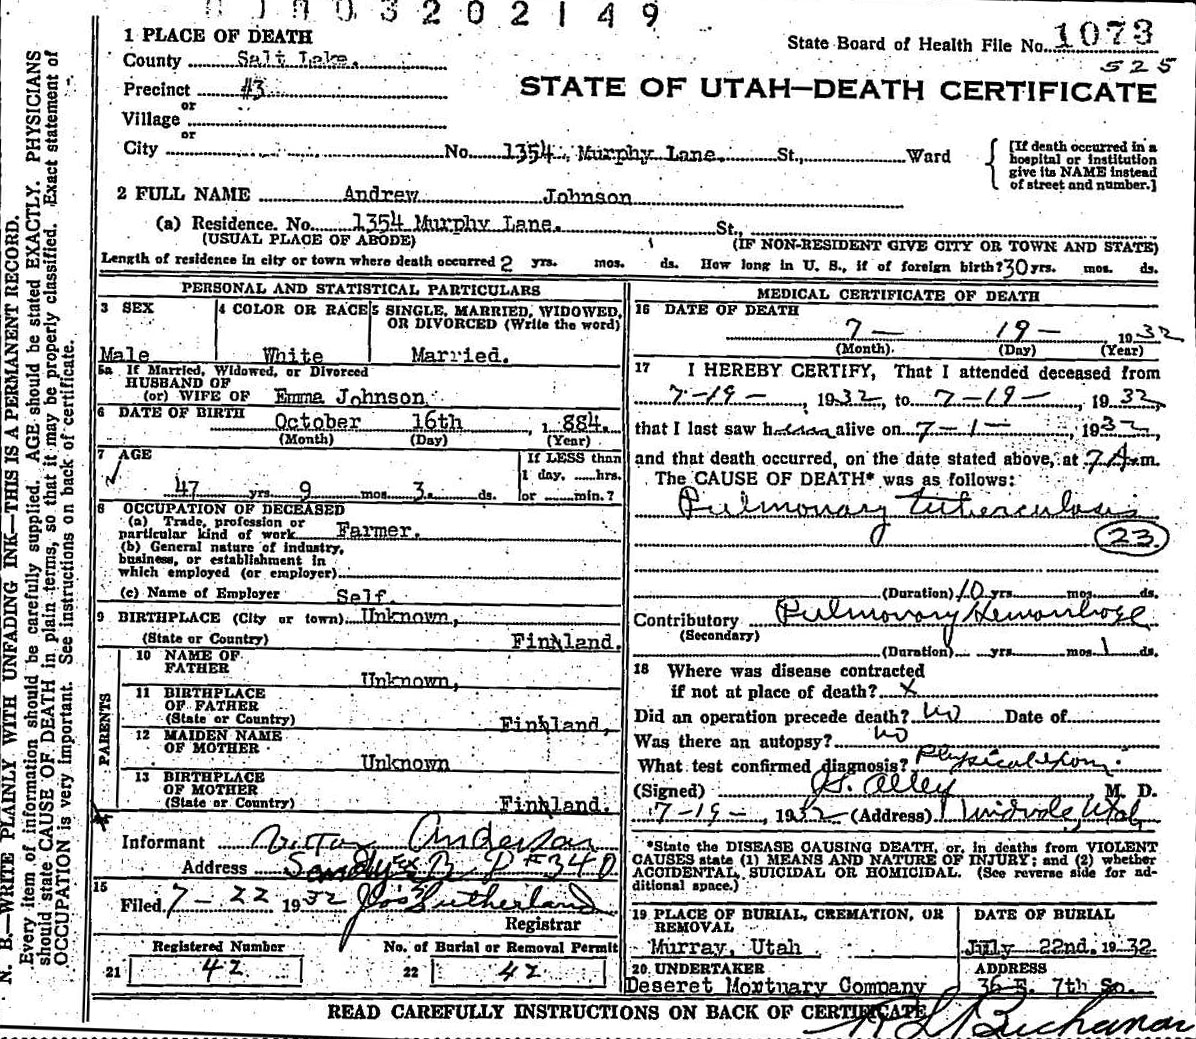 03202149
1 PLACE OF DEATH
State Board of Health File No. 1073
County Salt Lake.
525
Precinct #3
STATE OF UTAH—DEATH CERTIFICATE
or
Village
or
City No. 1354 Murphy Lane. St., Ward
[If death occurred in a hospital or institution give its NAME instead of street and number.]
2 FULL NAME Andrew Johnson
(a) Residence. No. 1354 Murphy Lane. St.,
(USUAL PLACE OF ABODE) (IF NON-RESIDENT GIVE CITY OR TOWN AND STATE)
Length of residence in city or town where death occurred 2 yrs. mos. ds. How long in U. S., if of foreign birth? 30 yrs. mos. ds.
PERSONAL AND STATISTICAL PARTICULARS
3 SEX
Male
4 COLOR OR RACE
White
5 SINGLE, MARRIED, WIDOWED, OR DIVORCED (Write the word)
Married.
5a If Married, Widowed, or Divorced
HUSBAND OF
(or) WIFE OF Emma Johnson
6 DATE OF BIRTH October 16th , 1 884.
(Month) (Day) (Year)
7 AGE
47 yrs. 9 mos. 3. ds.
If LESS than
1 day, hrs.
or min.?
8 OCCUPATION OF DECEASED
(a) Trade, profession or
particular kind of work Farmer.
(b) General nature of industry,
business, or establishment in
which employed (or employer)
(c) Name of Employer Self.
9 BIRTHPLACE (City or town) Unknown,
(State or Country) Finkland.
PARENTS
10 NAME OF
FATHER Unknown,
11 BIRTHPLACE
OF FATHER
(State or Country) Finkland,
12 MAIDEN NAME
OF MOTHER Unknown
13 BIRTHPLACE
OF MOTHER
(State or Country) Finkland.
Informant Anderson
Address Sandy R D #340
15
Filed 7-22 1932 Jos Sutherland
Registrar
Registered Number
21 42
No. of Burial or Removal Permit
22 42
MEDICAL CERTIFICATE OF DEATH
16 DATE OF DEATH
7— 19— 1932
(Month). (Day) (Year)
17 I HEREBY CERTIFY, That I attended deceased from
7-19- , 1932, to 7-19- , 1932,
that I last saw h alive on 7-1- , 1932,
and that death occurred, on the date stated above, at 7 A.m.
The CAUSE OF DEATH* was as follows:
Pulmonary tuberculosis
23.
(Duration) 10 yrs. mos. ds.
Contributory Pulmonary Hemorrhage
(Secondary)
(Duration) yrs. mos. 1 ds.
18 Where was disease contracted
if not at place of death? x
Did an operation precede death? no Date of
Was there an autopsy? no
What test confirmed diagnosis? Physical Exam.
(Signed) Alley M. D.
7-19- , 1932 (Address) Midvale, Utah
*State the DISEASE CAUSING DEATH, or, in deaths from VIOLENT
CAUSES state (1) MEANS AND NATURE OF INJURY; and (2) whether
ACCIDENTAL, SUICIDAL OR HOMICIDAL. (See reverse side for ad-
ditional space.)
19 PLACE OF BURIAL, CREMATION, OR
REMOVAL
Murray, Utah
DATE OF BURIAL
July 22nd. 1932.
20 UNDERTAKER
Deseret Mortuary Company
ADDRESS
36 E. 7th So.
READ CAREFULLY INSTRUCTIONS ON BACK OF CERTIFICATE
Buchanan
N. B.—WRITE PLAINLY WITH UNFADING INK—THIS IS A PERMANENT RECORD.
Every item of information should be carefully supplied. AGE should be stated EXACTLY. PHYSICIANS
should state CAUSE OF DEATH in plain terms, so that it may be properly classified. Exact statement of
OCCUPATION is very important. See instructions on back of certificate.